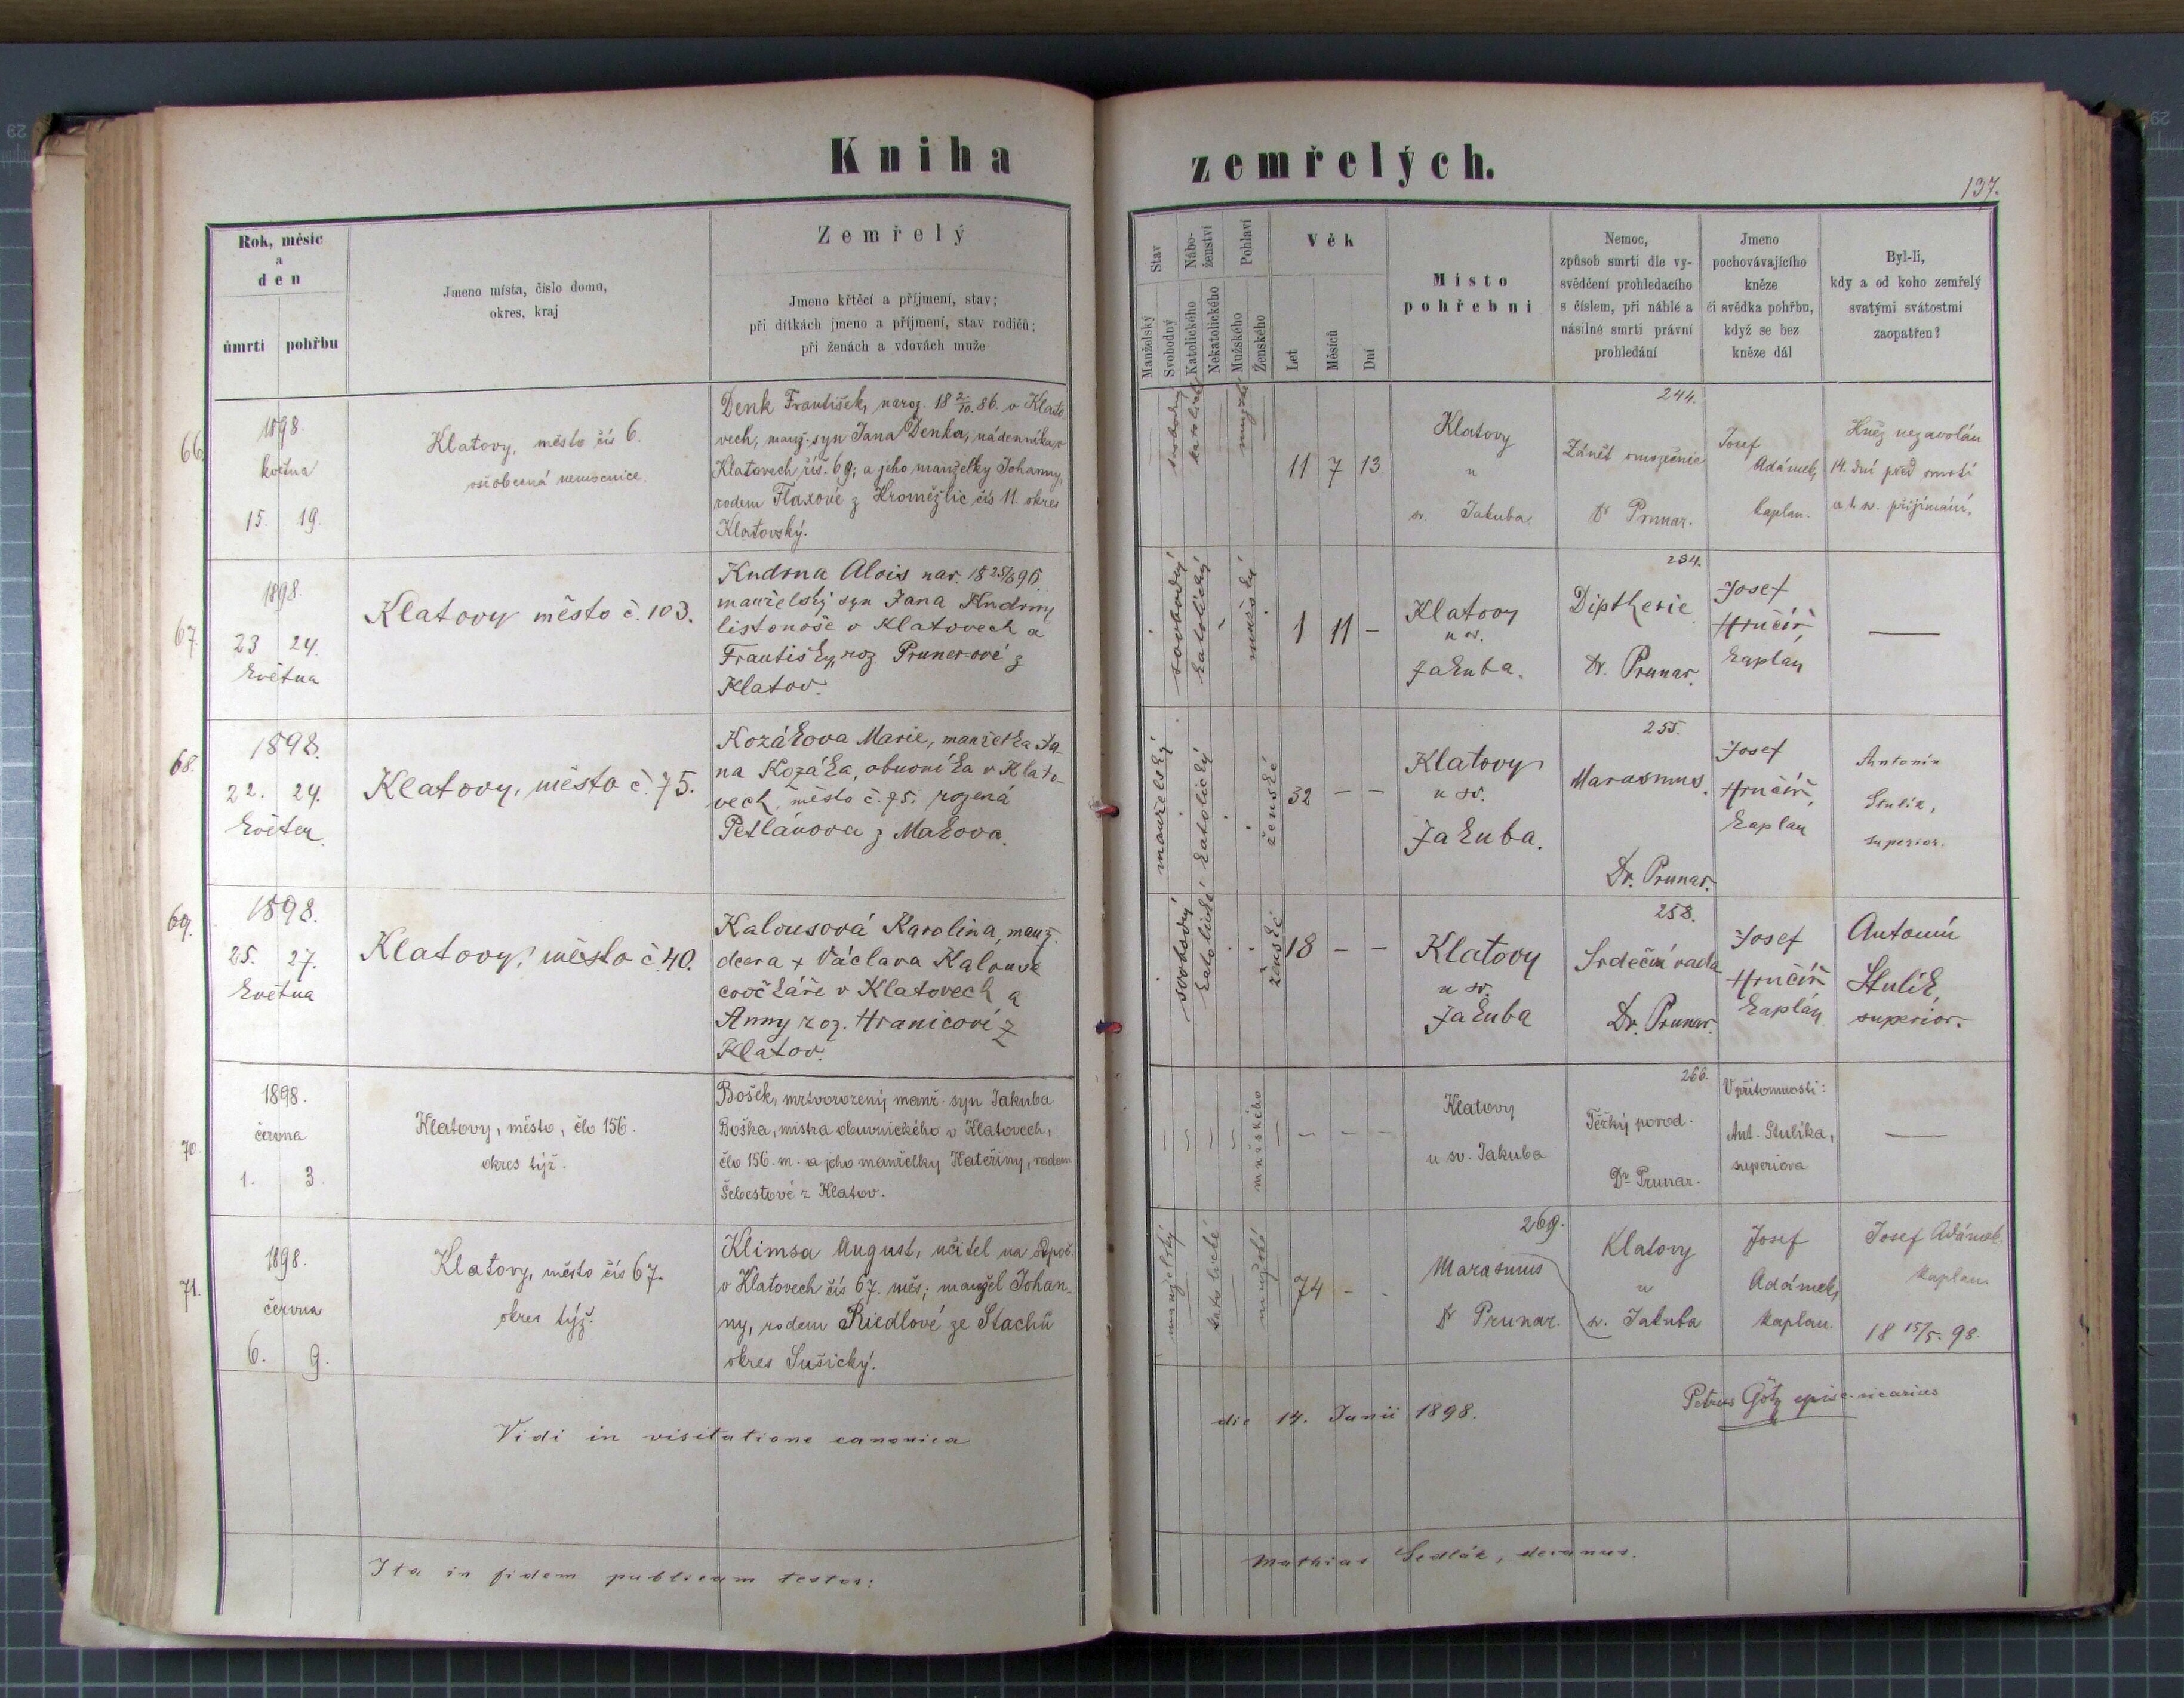 Kniha zemřelých.
137.
Rok, měsíc
a
den
úmrtí pohřbu
Jmeno místa, číslo domu,
okres, kraj
Zemřelý
Jmeno křtěcí a příjmení, stav;
při dítkách jmeno a příjmení, stav rodičů;
při ženách a vdovách muže
Stav
Manželský
Svobodný
Nábo-
ženství
Katolického
Nekatolického
Pohlaví
Mužského
Ženského
Věk
Let
Měsíců
Dní
Místo
pohřební
Nemoc,
způsob smrti dle vy-
svědčení prohledacího
s číslem, při náhlé a
násilné smrti právní
prohledání
Jmeno
pochovávajícího
kněze
či svědka pohřbu,
když se bez
kněze dál
Byl-li,
kdy a od koho zemřelý
svatými svátostmi
zaopatřen?
66.
1898.
května
15. 19.
Klatovy, město čís 6.
všeobecná nemocnice.
Denk František, naroz. 18 2/10. 86. v Klato
vech, manž. syn Jana Denka, nádenníka v
Klatovech čís. 69; a jeho manželky Johanny,
rodem Flaxové z Kroměžlic čís 11. okres
Klatovský.
svobodný
katolické
mužské
11 7 13
Klatovy
u
sv. Jakuba.
244.
Zánět
Dr Prunar.
Josef
Adámek,
kaplan.
Kněz nezavolán
14. dní před smrtí
u t. sv. přijímání.
67.
1898.
23 24.
května
Klatovy město č. 103.
Kudrna Alois nar. 18 25/6 96
manželský syn Jana Kudrny
listonoše v Klatovech a
Františky, roz Prunerové z
Klatov.
svobodný
katolický
mužský
1 11 –
Klatovy
u sv.
Jakuba.
254.
Diptherie
Dr. Prunar.
Josef
Hručíř,
kaplan
—
68.
1898.
22. 24.
květen
Klatovy, město č. 75.
Kozákova Marie, manželka Ja
na Kozáka, obuvníka v Klato-
vech, město č. 75. rozená
Petlánova z Makova.
manželský
katolický
ženské
32 – –
Klatovy
u sv.
Jakuba.
255.
Marasmus.
Dr. Prunar.
Josef
Hručíř,
kaplan
Antonín
Stulík,
superior.
69.
1898.
25. 27.
května
Klatovy, město č. 40.
Kalousová Karolina, manž.
dcera + Václava Kalouse
cvočkáře v Klatovech a
Anny roz. Hranicoví z
Klatov.
svobodný
katolické
ženské
18 – –
Klatovy
u sv.
Jakuba
258.
Srdeční vada
Dr. Prunar.
Josef
Hručíř
kaplán
Antonín
Stulík,
superior.
70.
1898.
června
1. 3.
Klatovy, město, člo 156.
okres týž.
Bošek, mrtvorozený manž. syn Jakuba
Boška, mistra obuvnického v Klatovech,
člo 156. m. a jeho manželky Kateřiny, rodem
Šebestové z Klatov.
mužského
– – –
Klatovy
u sv. Jakuba
266.
Těžký porod.
Dr Prunar.
V přítomnosti:
Ant. Stulíka,
superiora
—
71.
1898.
června
6. 9.
Klatovy, město čís 67.
okres týž.
Klimsa August, učitel na odpoč.
v Klatovech čís 67. měs; manžel Johan-
ny, rodem Riedlové ze Stachů
okres Sušický.
manželský
katolické
mužské
74 – –
269.
Marasmus
Dr Prunar.
Klatovy
u
sv. Jakuba
Josef
Adámek,
kaplan.
Josef Adámek
kaplan
18 15/5. 98.
Vidi in visitatione canonica die 14. Junii 1898.
Petrus Götz episc. vicarius
Ita in fidem publicam testor: Mathias Sedlák, decanus.